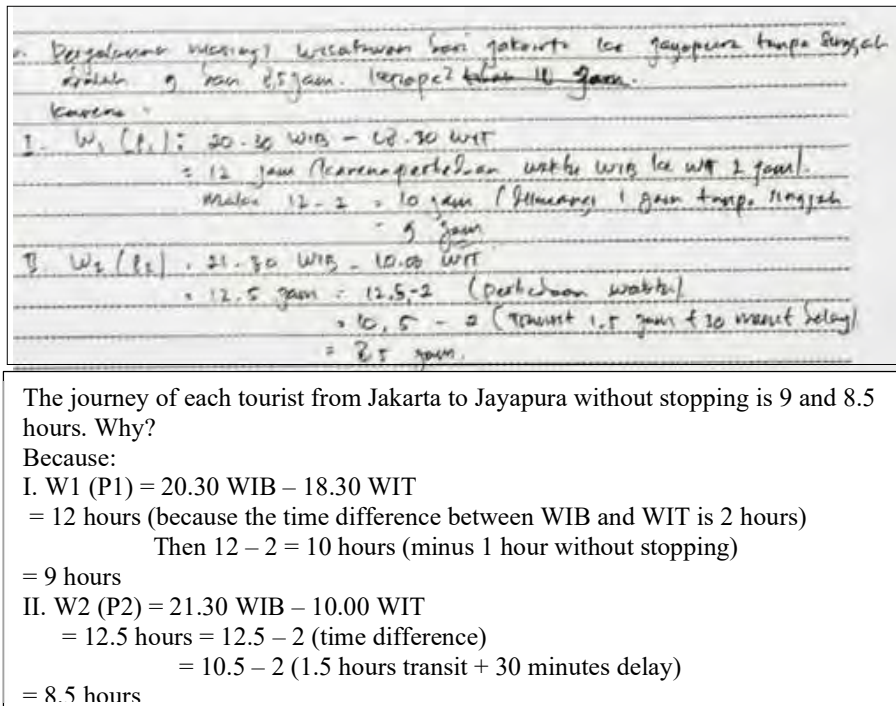 Pergalanan masing2 wisatawan dari jakarta ke jayapura tanpa singgah
adalah 9 dan 8,5 jam. kenapa?
karena:
I. W1 (P1): 20.30 WIB – 08.30 WIT
= 12 jam (karena perbedaan waktu WIB ke WIT 2 jam).
maka 12 - 2 = 10 jam (dikurangi 1 jam tanpa singgah
= 9 jam
II. W2 (P2) = 21.30 WIB – 10.00 WIT
= 12.5 jam = 12,5-2 (perbedaan waktu)
= 10,5 - 2 (Transit 1.5 jam + 30 menit delay)
= 8.5 jam.
The journey of each tourist from Jakarta to Jayapura without stopping is 9 and 8.5
hours. Why?
Because:
I. W1 (P1) = 20.30 WIB – 18.30 WIT
= 12 hours (because the time difference between WIB and WIT is 2 hours)
Then 12 – 2 = 10 hours (minus 1 hour without stopping)
= 9 hours
II. W2 (P2) = 21.30 WIB – 10.00 WIT
= 12.5 hours = 12.5 – 2 (time difference)
= 10.5 – 2 (1.5 hours transit + 30 minutes delay)
= 8.5 hours